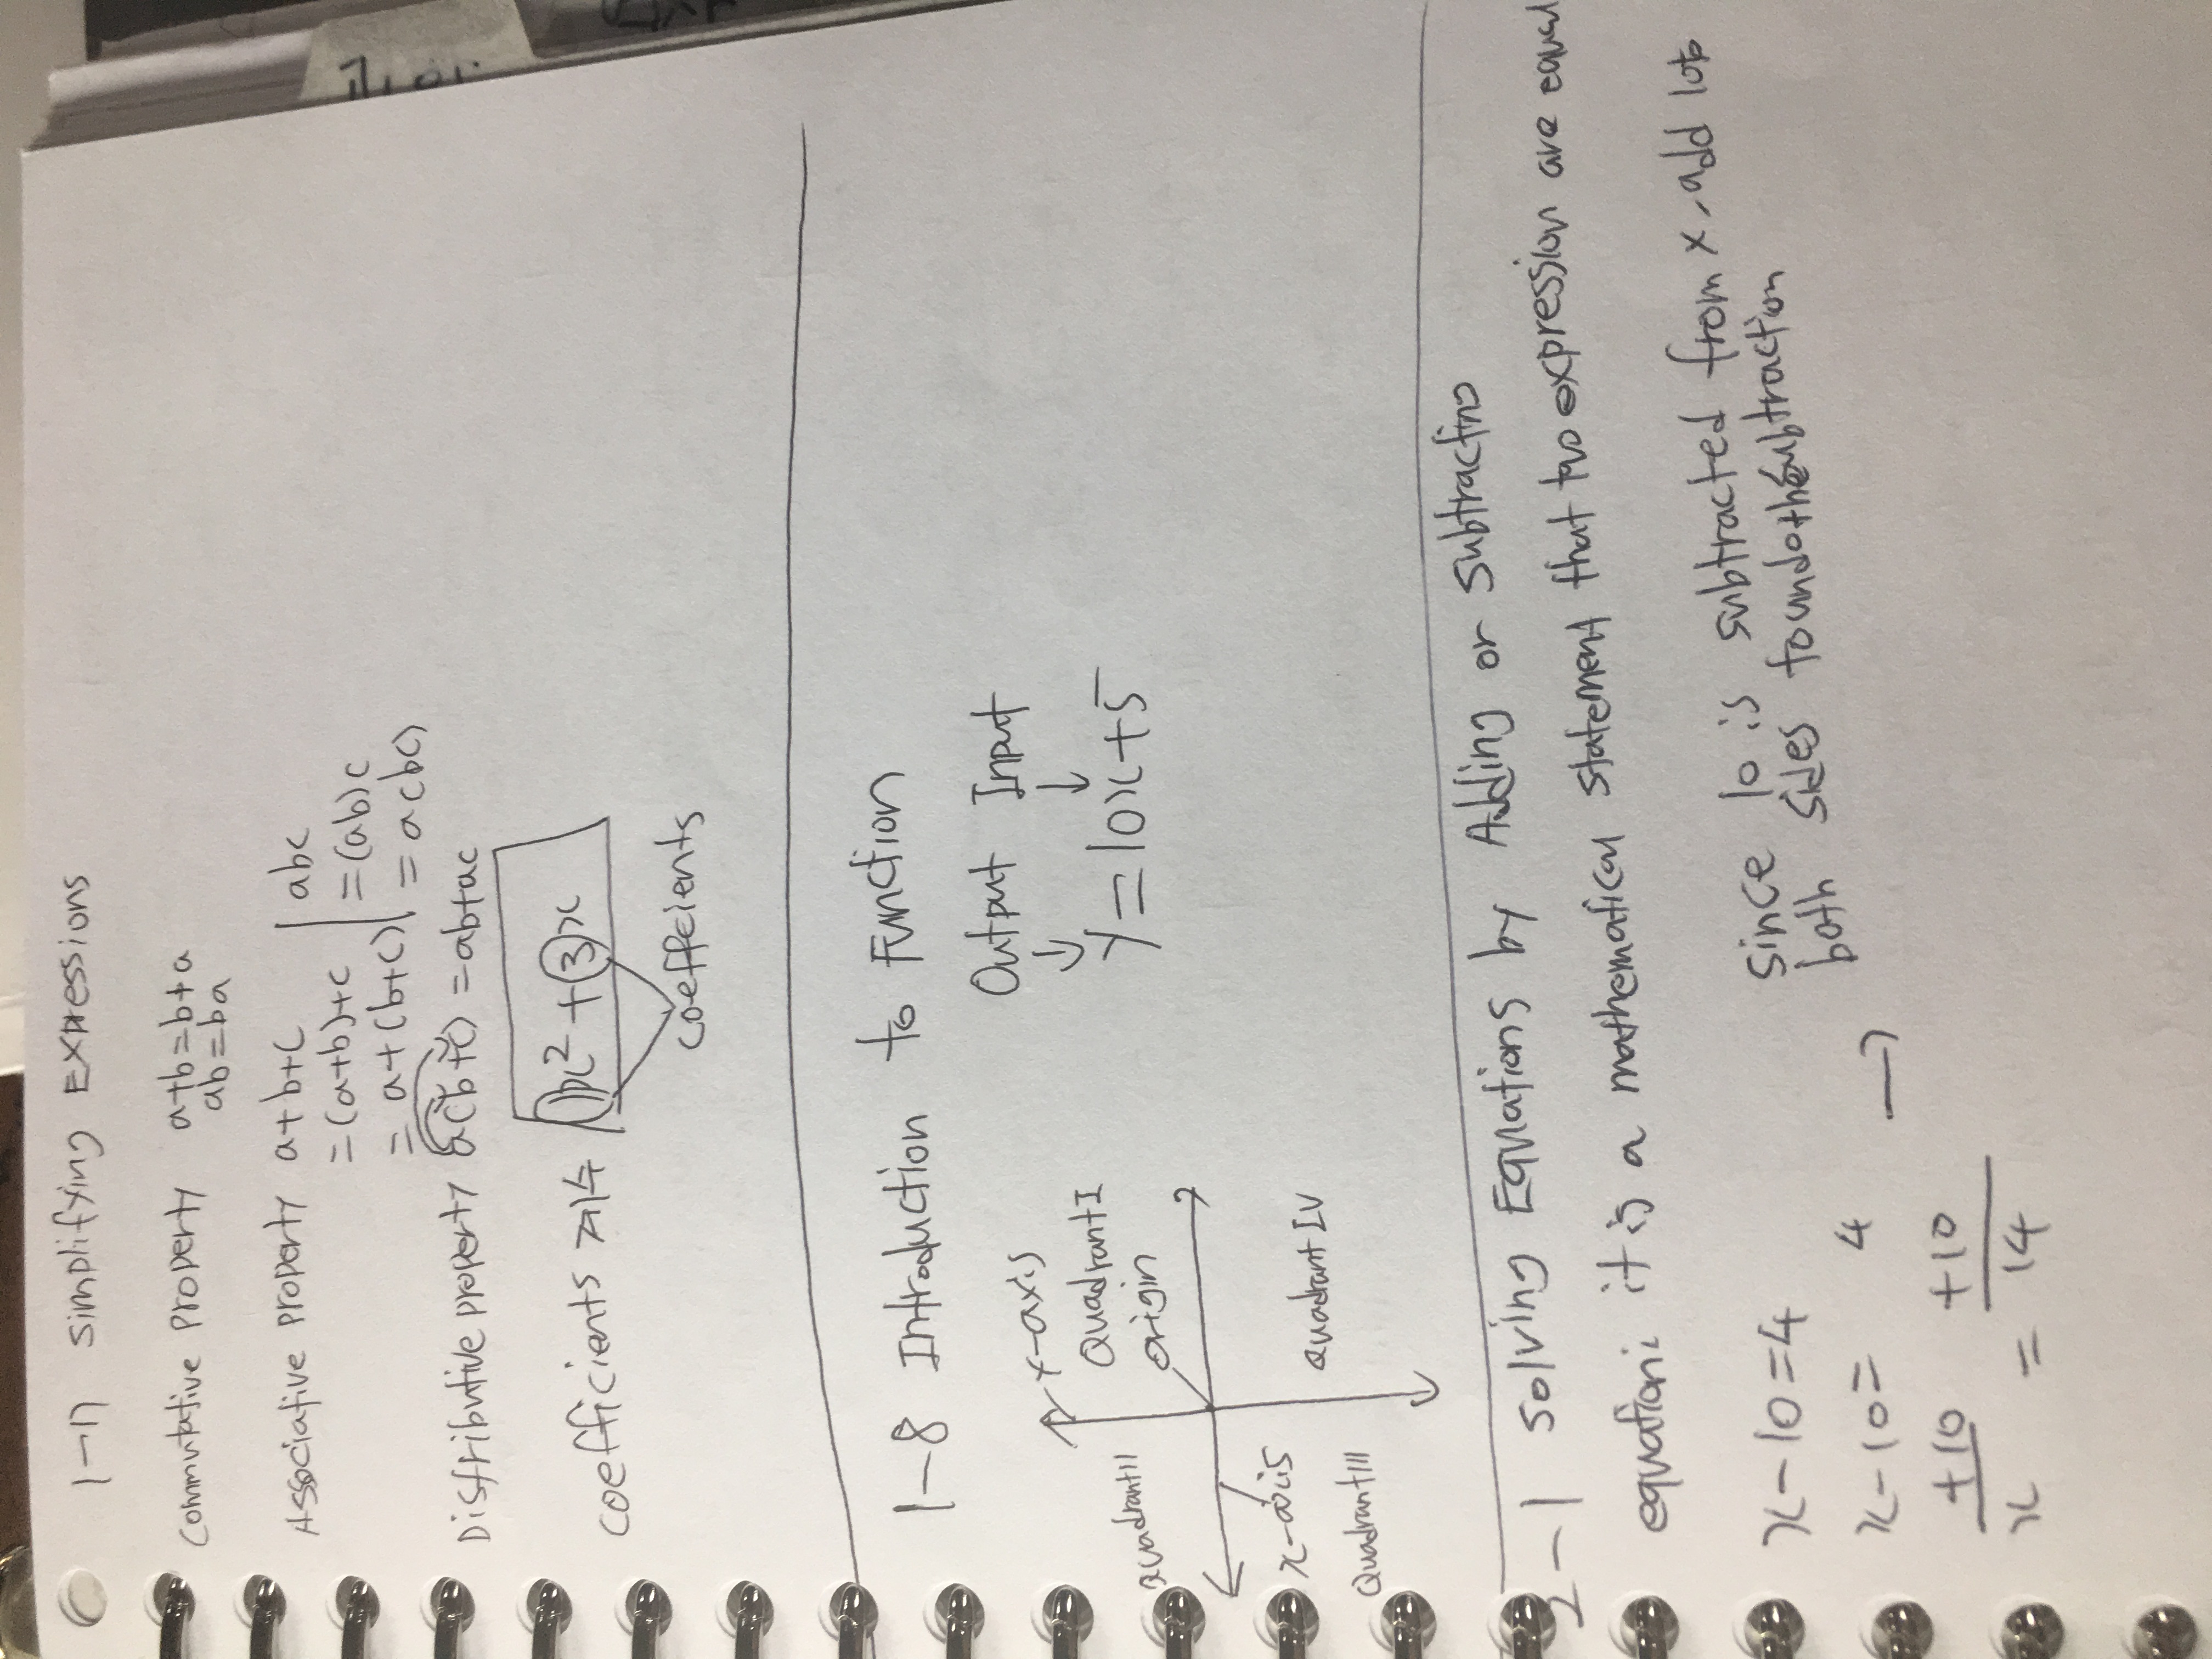 1-7 Simplifying Expressions
Commutative Property a+b=b+a
ab=ba
Associative property a+b+c | abc
=(a+b)+c | =(ab)c
=a+(b+c) | =a(bc)
Distributive property a(b+c)=ab+ac
Coefficients 계수 1x²+3x
coeffecients
1-8 Introduction to Function
Y-axis
Quadrant I
origin
quadrant II
x-axis
Quadrant III
quadrant IV
Output Input
↓ ↓
y=10x+5
2-1 Solving Equations by Adding or Subtracting
equation: it is a mathematical statement that two expression are equal
x-10=4
x-10= 4
+10 +10
x = 14
→
Since 10 is subtracted from x, add 10 to
both sides to undo the subtraction